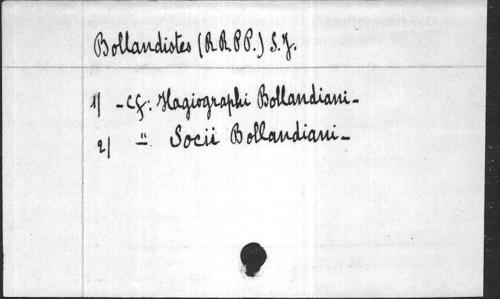 Bollandistes (R R. P P.) S. J.
1/ - Cf: Hagiographi Bollandiani -
2/ " Socii Bollandiani -